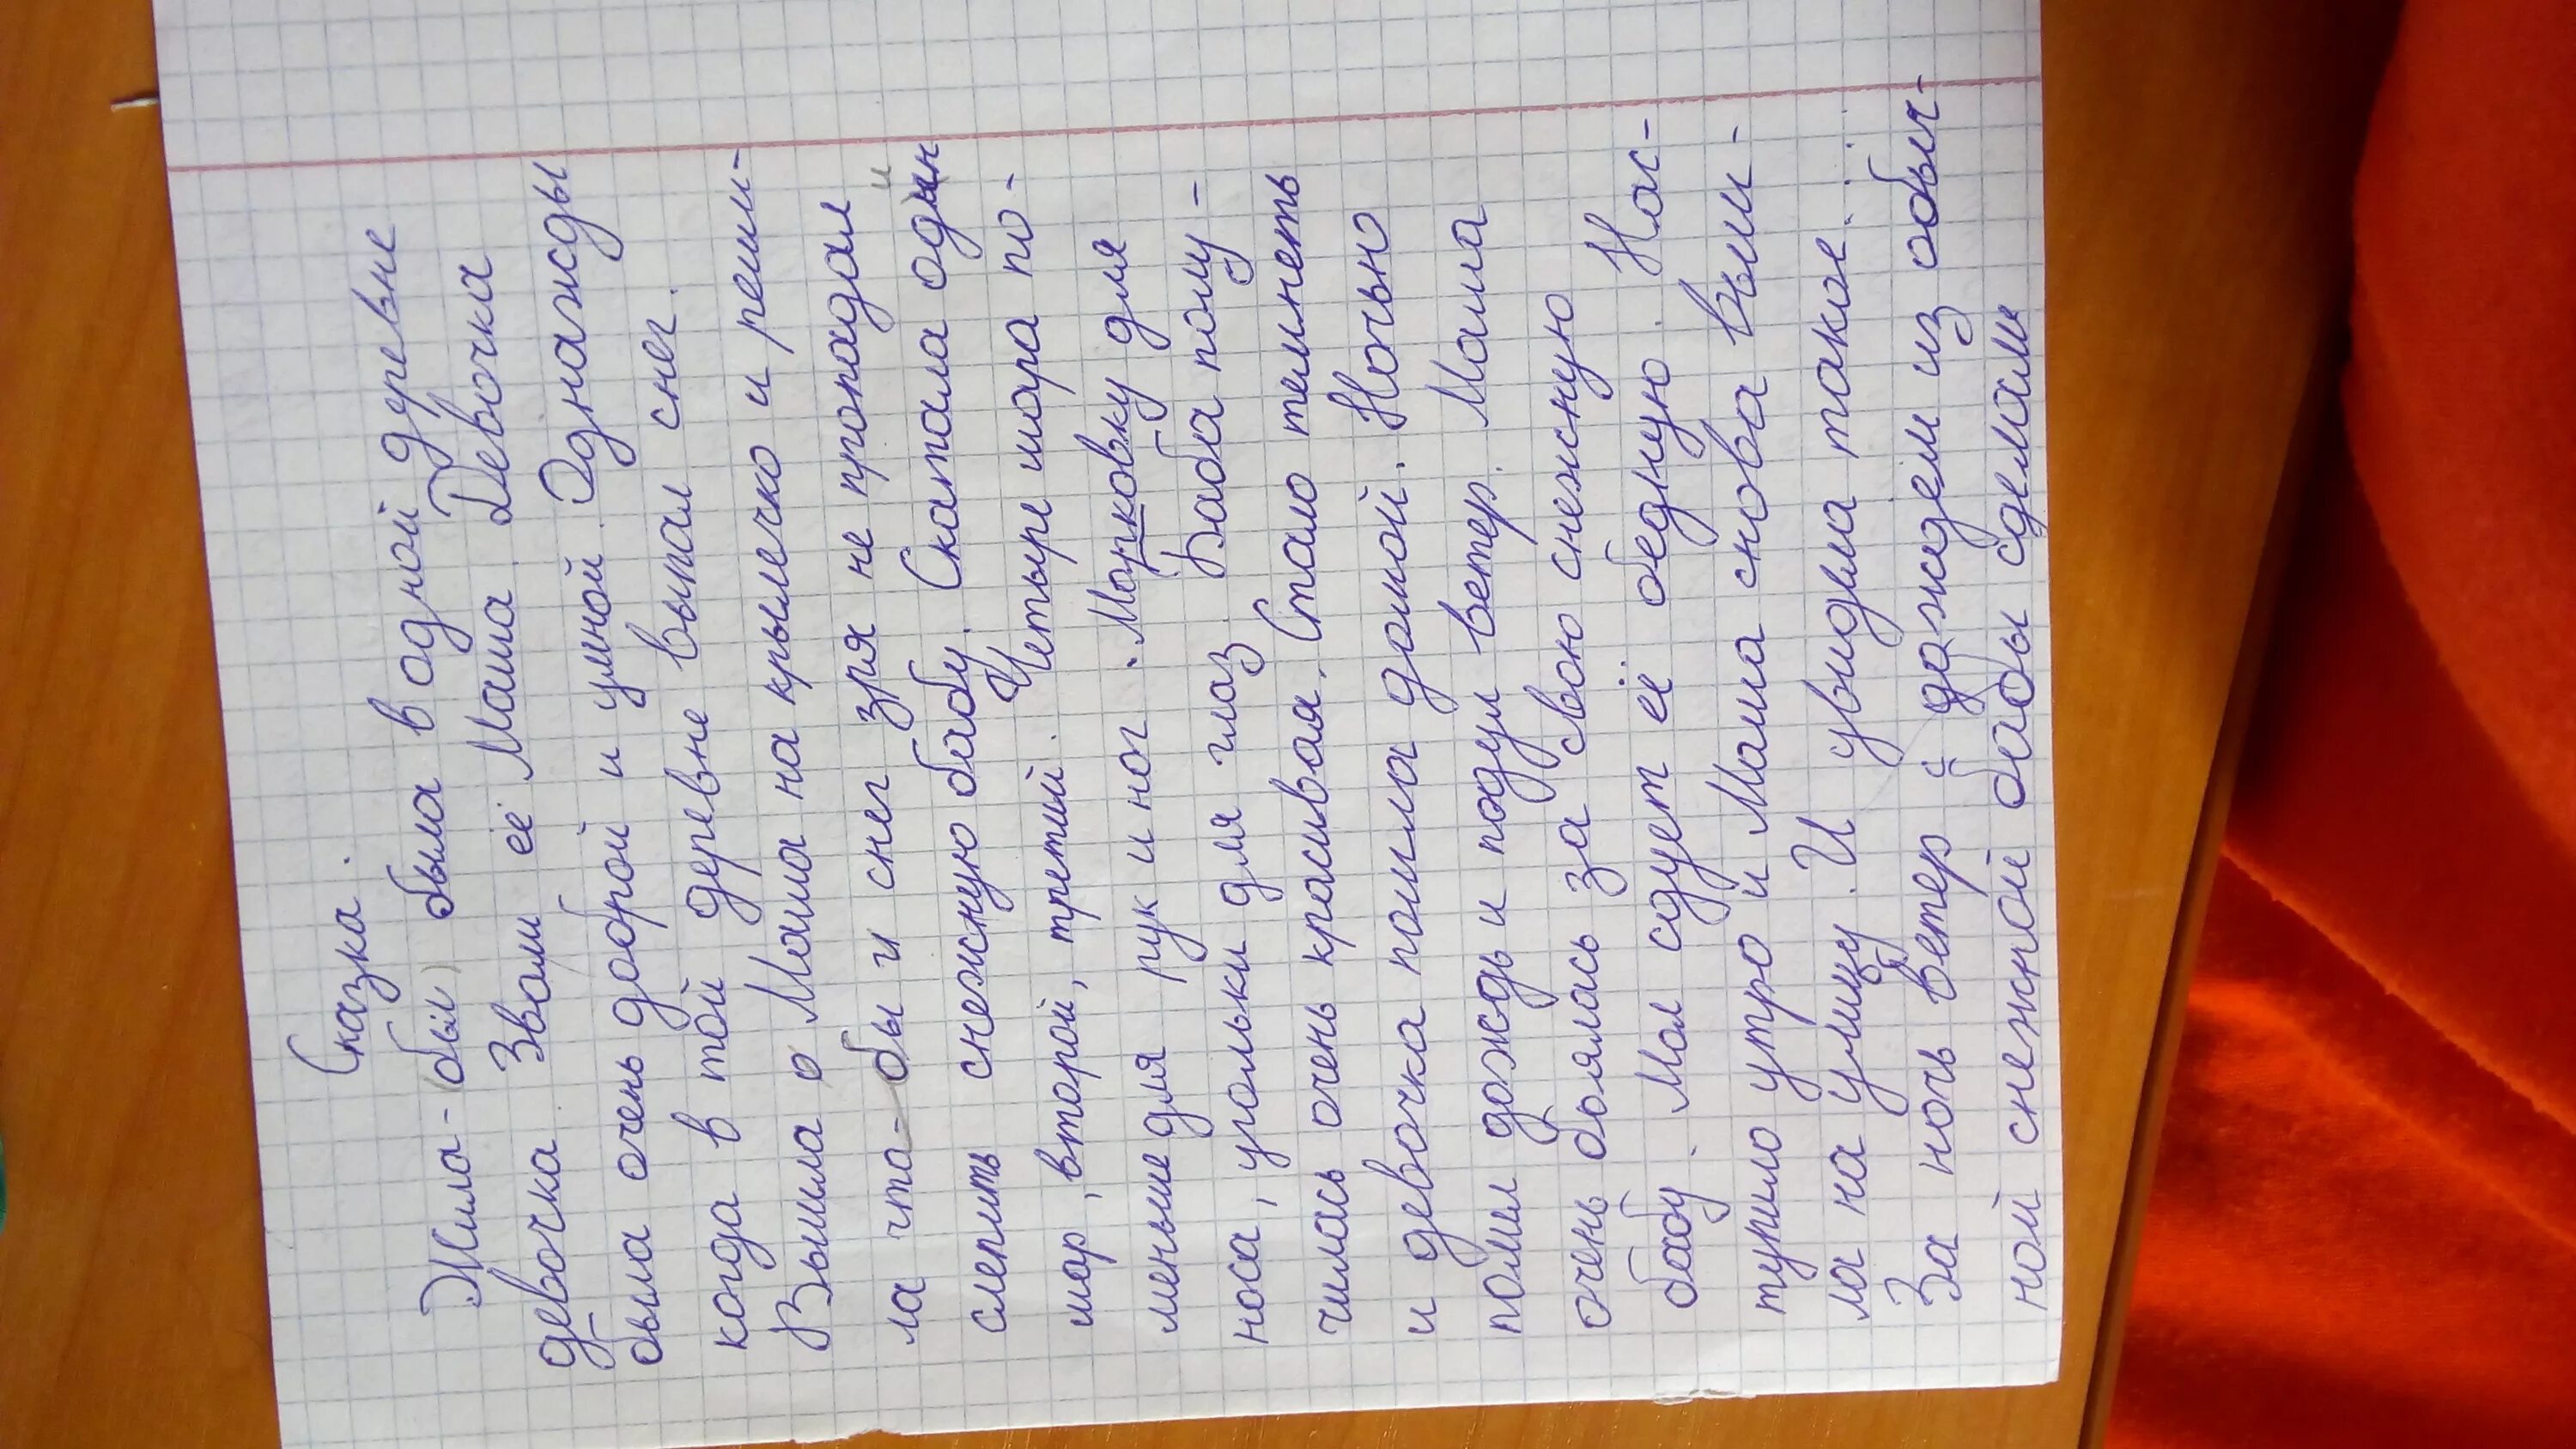 Сказка.
Жила-(был) была в одной деревне
девочка. Звали её Маша. Девочка
была очень доброй и умной. Однажды
когда в той деревне выпал снег.
Вышла Маша на крылечко и реши-
ла что-бы и снег зря не пропадал
слепить снежную бабу. Скатала один
шар, второй, третий. Четыре шара по-
меньше для рук и ног. Морковку для
носа, угольки для глаз. Баба полу-
чилась очень красивая. Стало темнеть
и девочка пошла домой. Ночью
пошёл дождь и подул ветер. Маша
очень боялась за свою снежную
бабу. Мол сдует её бедную. Нас-
тупило утро и Маша снова выш-
ла на улицу. И увидела такое...
За ночь ветер с дождём из обыч-
ной снежной бабы сделали